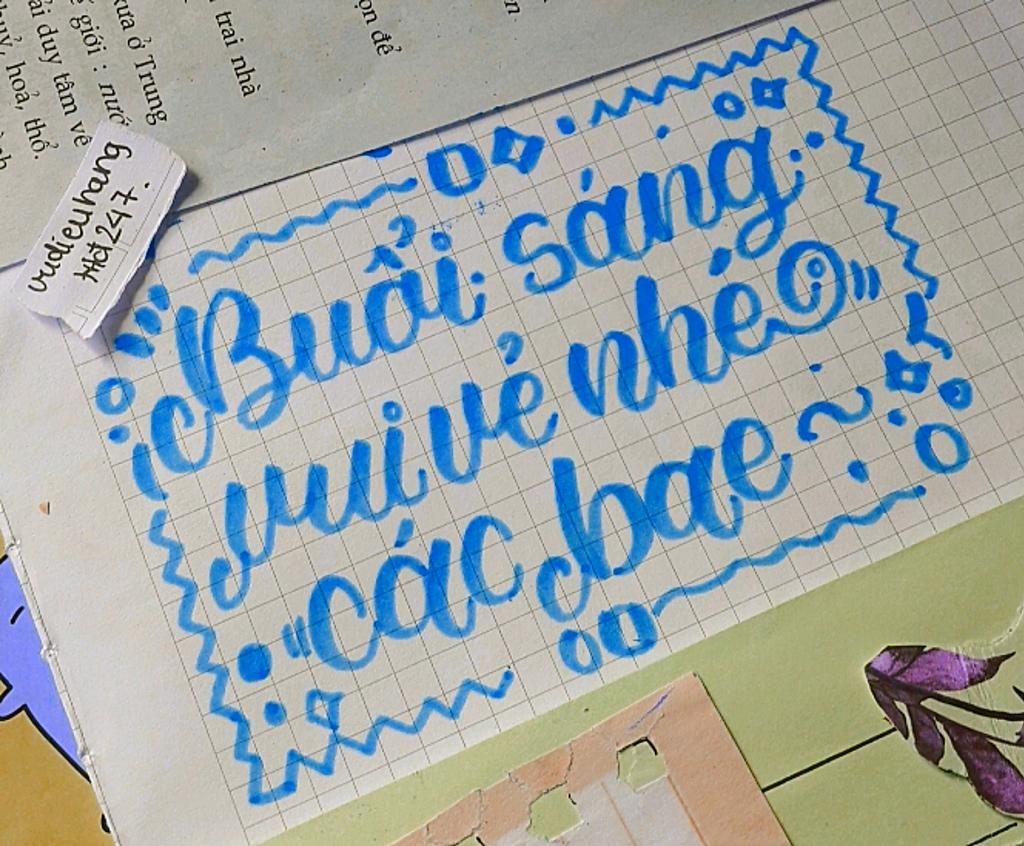 ưa ở Trung
ế giới : nướ
ải duy tâm về
huỷ, hoả, thổ.
trai nhà
ọn để
vudieuhang
#hot247.
Buổi sáng
vui vẻ nhé
các bae ~